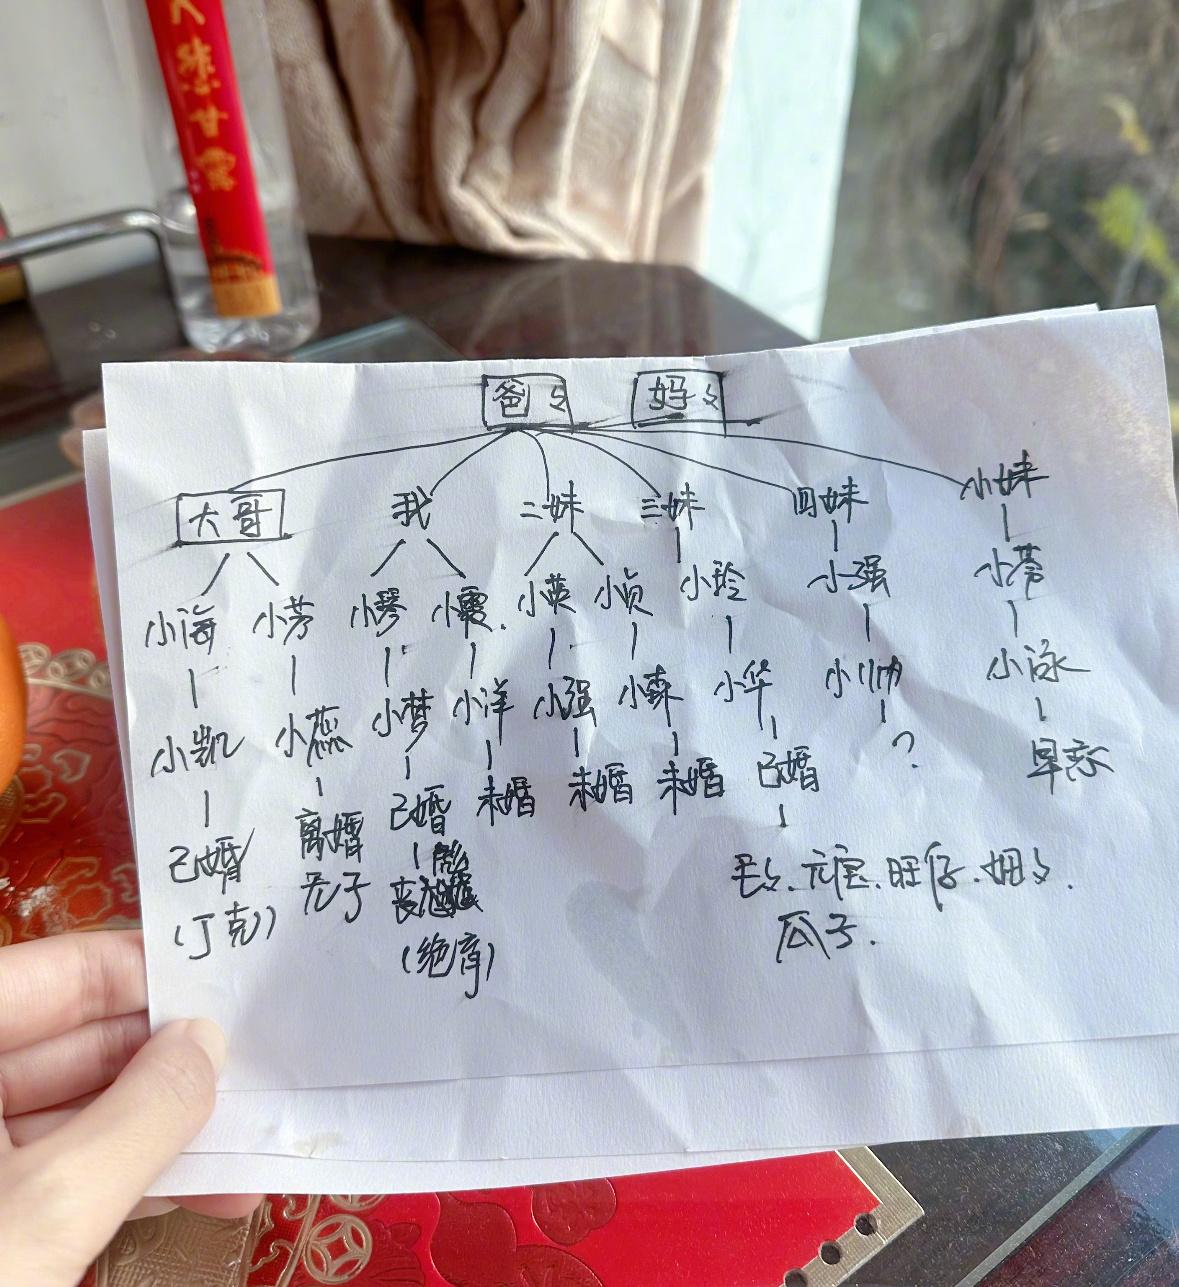 甘露
爸々 妈々
大哥 我 二妹 三妹 四妹 小妹
小海 小芳 小琴 小霞. 小英 小贞 小玲 小强 小蓉
小凯 小蕊 小梦 小洋 小强 小森 小华 小帅 小泳
已婚 离婚 已婚 未婚 未婚 未婚 已婚 ? 早恋
(丁克) 无子 丧彪
(绝育)
毛毛、元宝、旺仔、妞々、
瓜子.